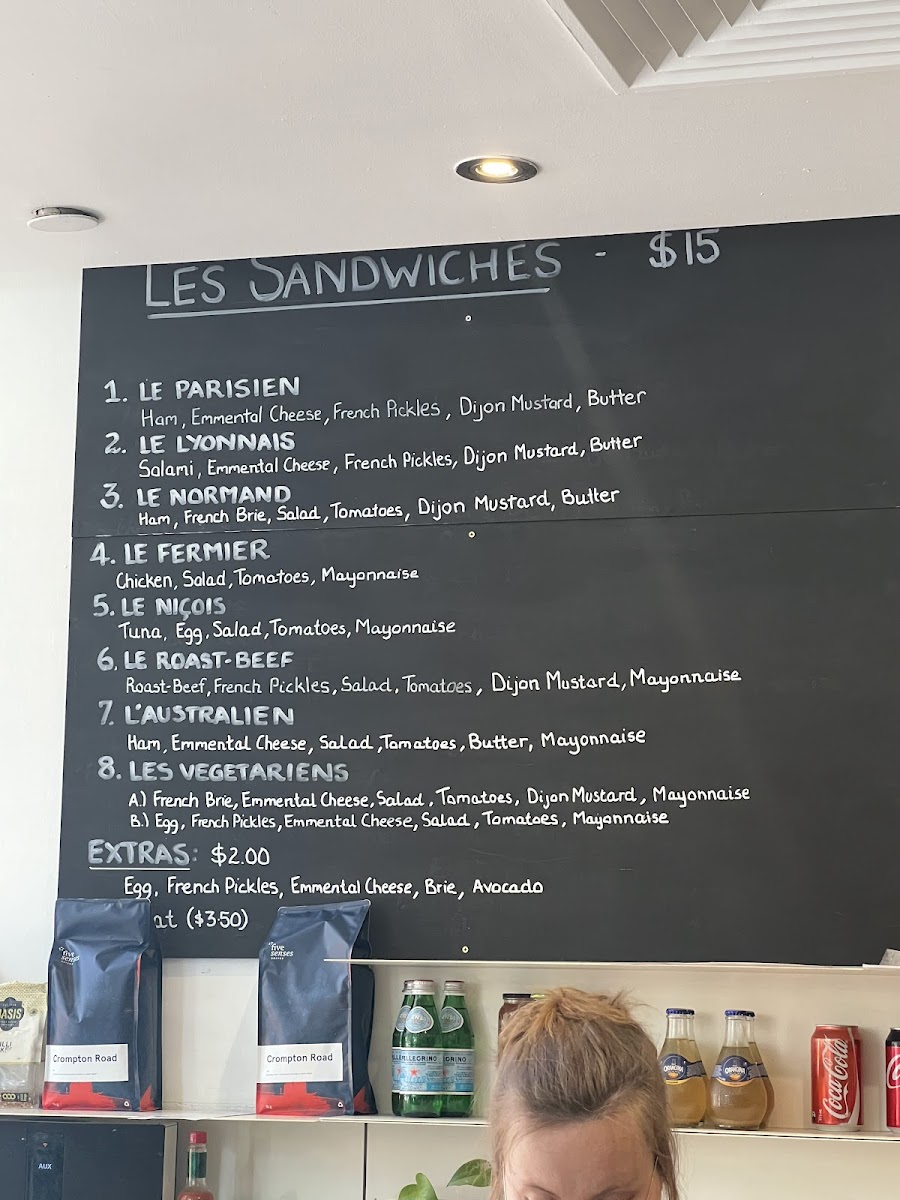 LES SANDWICHES - $15
1. LE PARISIEN
Ham, Emmental Cheese, French Pickles, Dijon Mustard, Butter
2. LE LYONNAIS
Salami, Emmental Cheese, French Pickles, Dijon Mustard, Butter
3. LE NORMAND
Ham, French Brie, Salad, Tomatoes, Dijon Mustard, Butter
4. LE FERMIER
Chicken, Salad, Tomatoes, Mayonnaise
5. LE NIÇOIS
Tuna, Egg, Salad, Tomatoes, Mayonnaise
6. LE ROAST-BEEF
Roast-Beef, French Pickles, Salad, Tomatoes, Dijon Mustard, Mayonnaise
7. L'AUSTRALIEN
Ham, Emmental Cheese, Salad, Tomatoes, Butter, Mayonnaise
8. LES VEGETARIENS
A.) French Brie, Emmental Cheese, Salad, Tomatoes, Dijon Mustard, Mayonnaise
B.) Egg, French Pickles, Emmental Cheese, Salad, Tomatoes, Mayonnaise
EXTRAS: $2.00
Egg, French Pickles, Emmental Cheese, Brie, Avocado
at ($3.50)
five senses
COFFEE
Crompton Road
five senses
COFFEE
Crompton Road
ORANGINA
ORANGINA
Coca-Cola
AUX